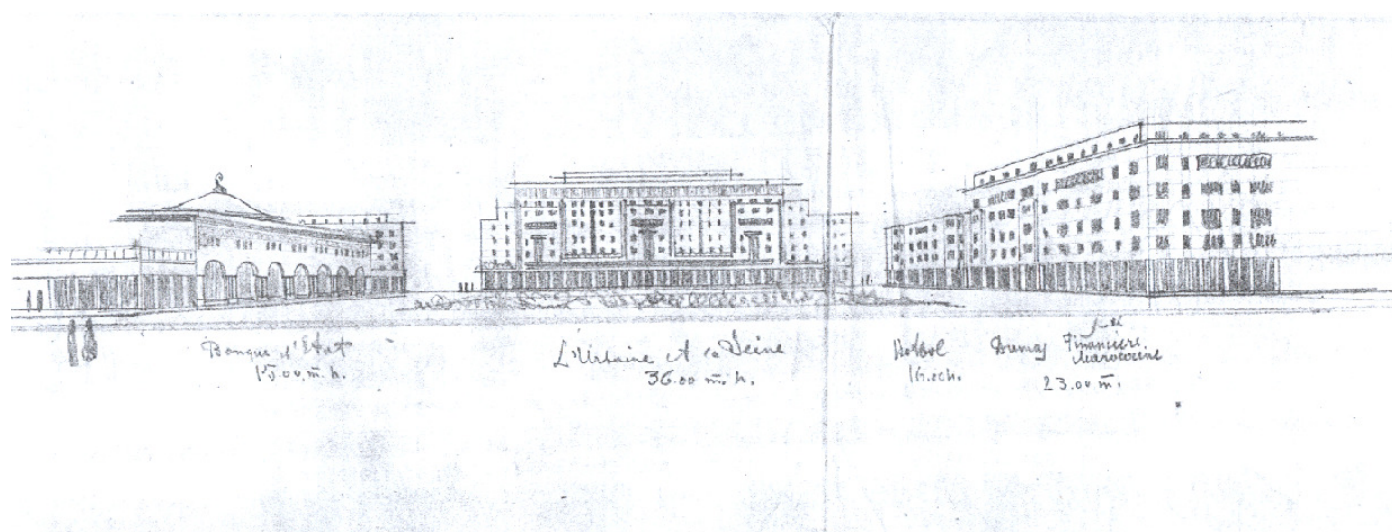 Banque d'Etat
15.00 m. h.
L'Urbaine et la Seine
36.00 m. h.
Hotel
16.00 h.
Sté
Financière
Marocaine
23.00 m.